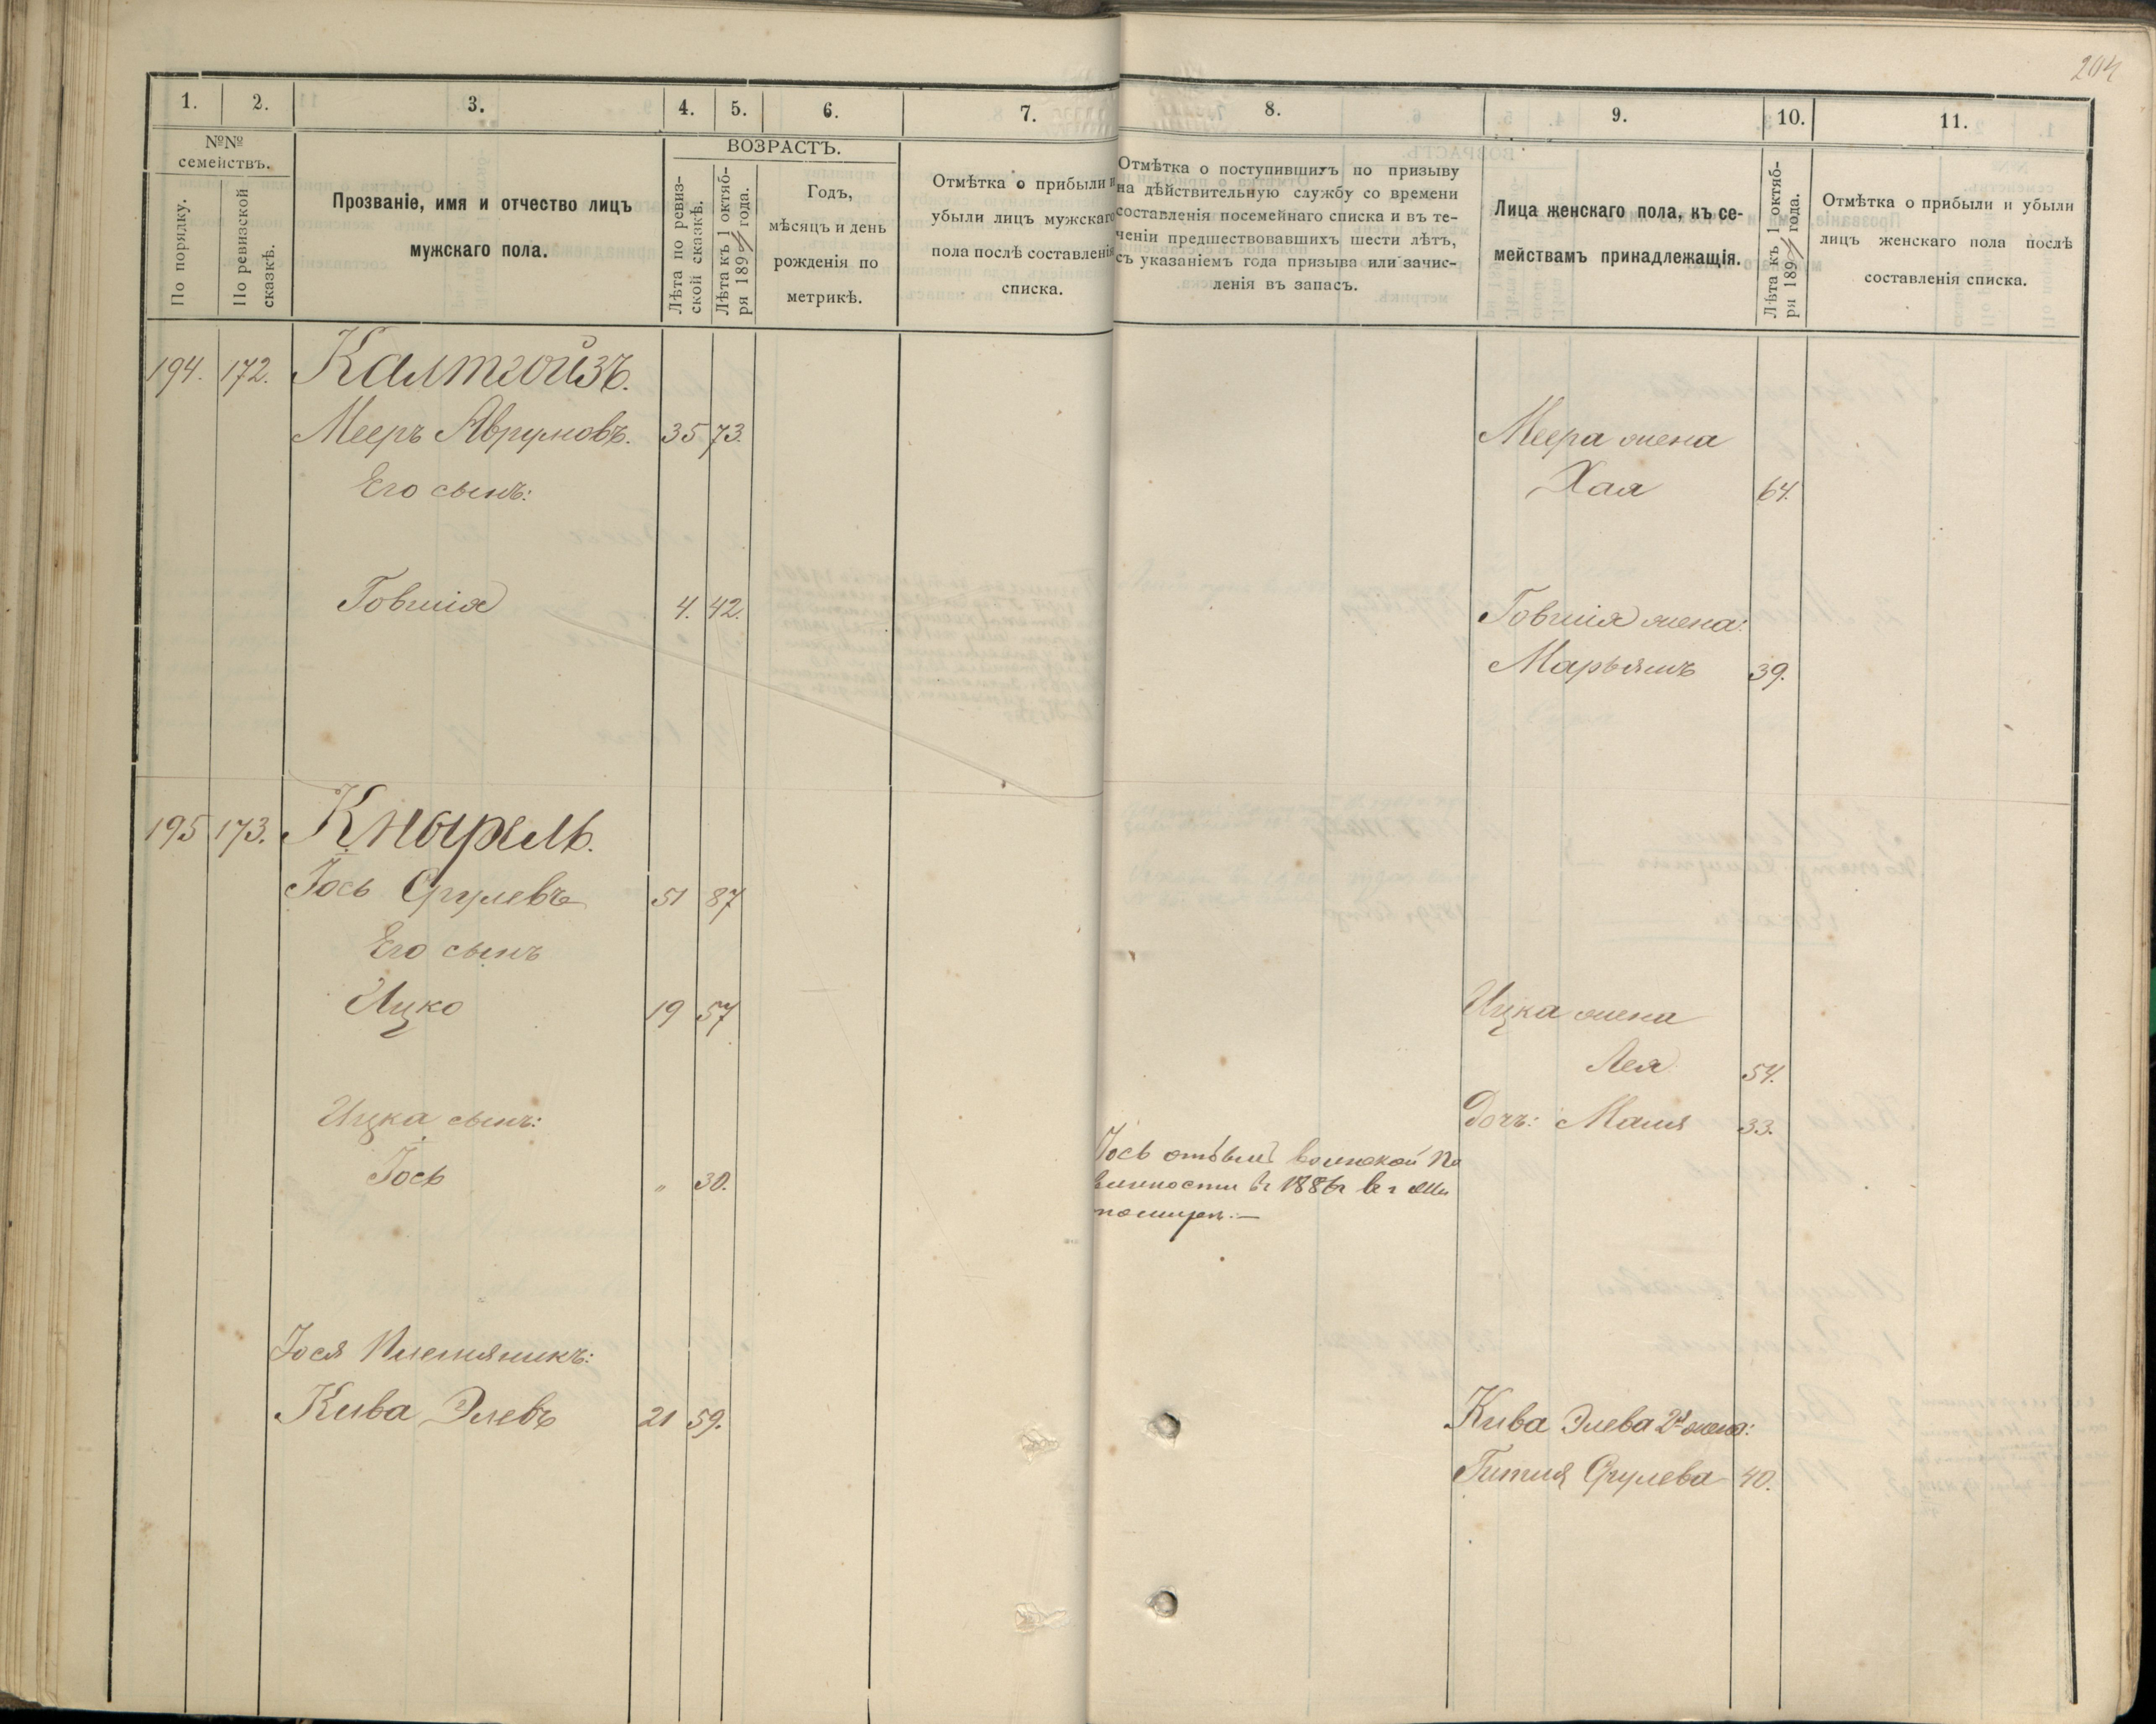 204
1. 2. 3. 4. 5. 6. 7. 8. 9. 10. 11.
№№ семействъ.
По порядку.
По ревизской сказкѣ.
Прозваніе, имя и отчество лицъ
мужскаго пола.
ВОЗРАСТЪ.
Лѣта по ревиз-
ской сказкѣ.
Лѣта къ 1 октяб-
ря 189 года.
Годъ,
мѣсяцъ и день
рожденія по
метрикѣ.
Отмѣтка о прибыли и
убыли лицъ мужскаго
пола послѣ составленія
списка.
Отмѣтка о поступившихъ по призыву
на дѣйствительную службу со времени
составленія посемейнаго списка и въ те-
ченіи предшествовавшихъ шести лѣтъ,
съ указаніемъ года призыва или зачис-
ленія въ запасъ.
Лица женскаго пола, къ се-
мействамъ принадлежащія.
Лѣта къ 1 октяб-
ря 189 года.
Отмѣтка о прибыли и убыли
лицъ женскаго пола послѣ
составленія списка.
194. 172. Калтгойзъ.
Мееръ Аврумовъ. 35 73. Меера жена
Его сынъ: Хая 64.
Говшія 4. 42. Говшія жена:
Марьямъ 39.
195 173. Кнырель.
Іось Срулевъ 51 87
Его сынъ
Ицко 19 57 Ицка жена
Лея 54.
Ицка сынъ: Дочъ: Маля 33.
Іось " 30. Іось отбылъ воинской по
винности въ 1886г въ
Іося Племяникъ:
Кива Элевъ 21 59. Кива Элева 2я жена:
Гитля Срулева 40.